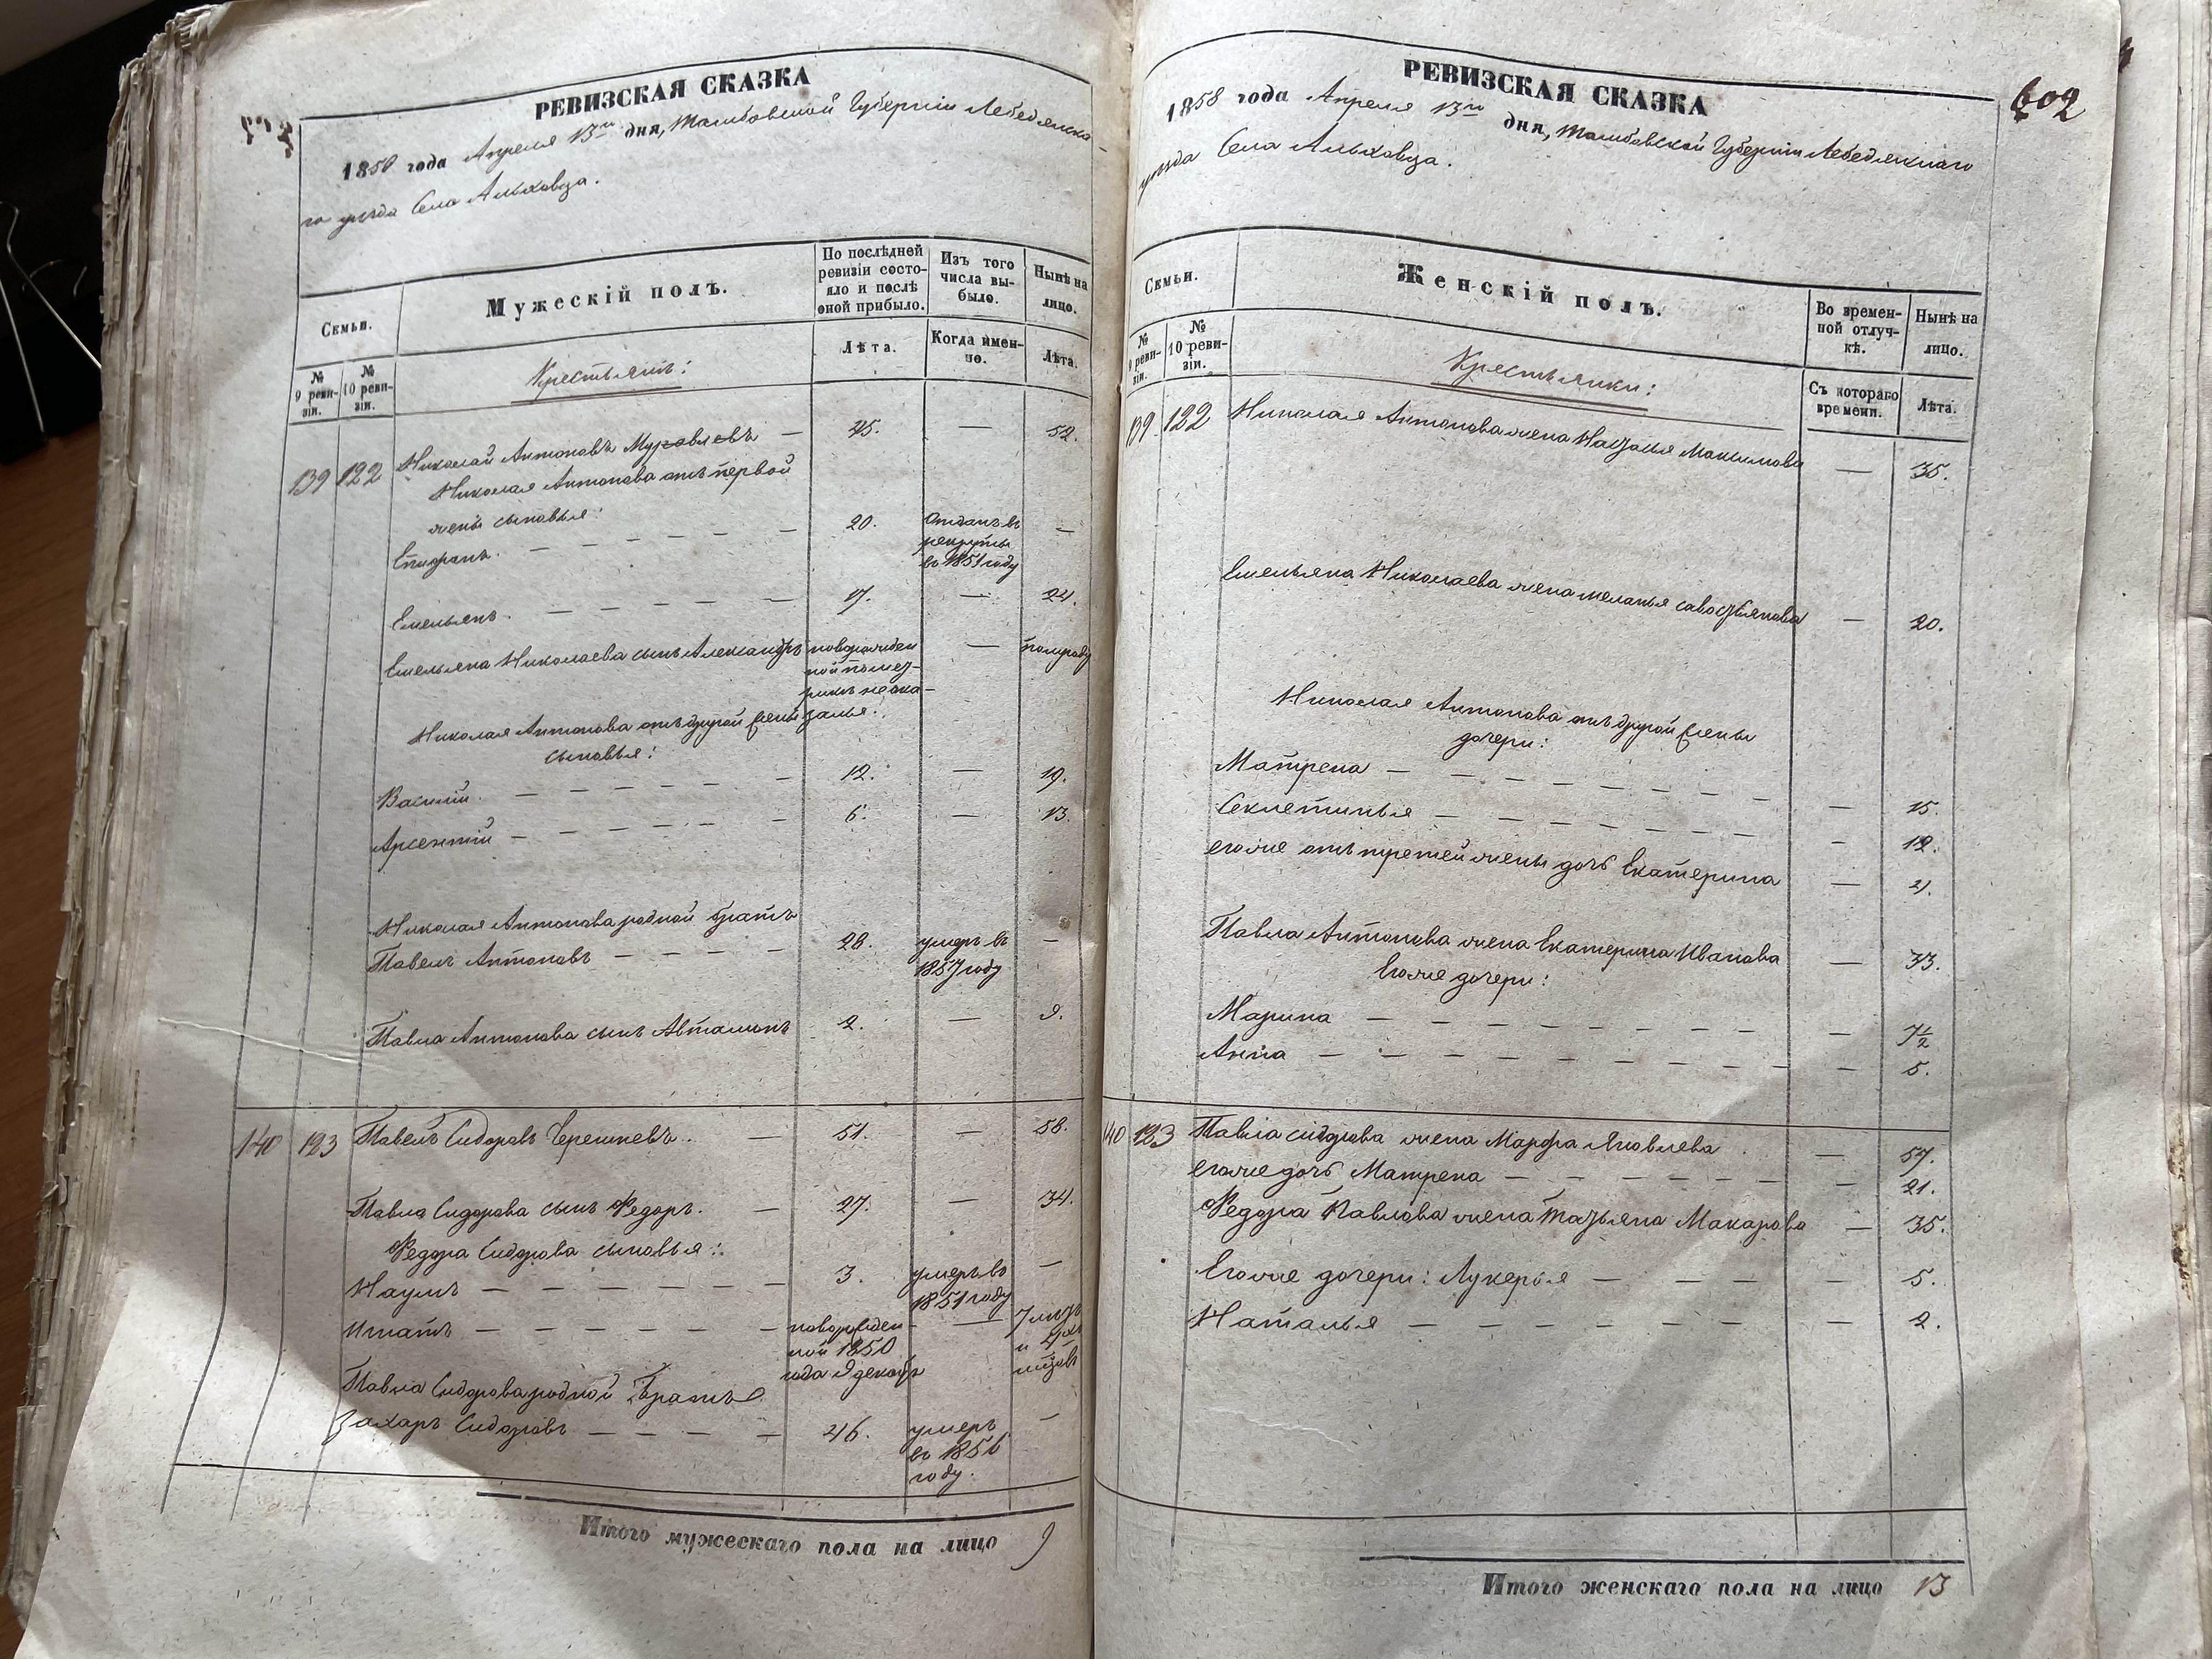 РЕВИЗСКАЯ СКАЗКА
1858 года Апреля 13го дня, Тамбовской Губернiи Лебедянска-
го уѣзда Села Альховца.
Семьи.
Мужескiй полъ.
По послѣдней ревизiи состо-яло и послѣ оной прибыло.
Изъ того числа вы-было.
Нынѣ на лицо.
№ 9 реви-зiи.
№ 10 реви-зiи.
Крестьянѣ:
Лѣта.
Когда имен-но.
Лѣта.
139 122 Николай Антоновъ Муравлевъ — 45. — 52.
Николая Антонова отъ первой
жены сыновья:
Епифанъ. — 20. Отданъ въ рекруты въ 1851 году —
Емельянъ. — 17. — 24.
Емельяна Николаева сынъ Александръ новорожден ной по мет-рикѣ не ока-залья. — полгода
Николая Антонова отъ другой жены
сыновья:
Василiй. — 12. — 19.
Арсентiй — 6. — 13.
Николая Антонова родной братъ
Павелъ Антоновъ — 28. умеръ въ 1857 году —
Павла Антонова сынъ Автамонъ 2. — 9.
140 123 Павелъ Сидоровъ Черешневъ. — 51. — 58.
Павла Сидорова сынъ Федоръ. — 27. — 34.
Федора Сидорова сыновья:
Наумъ — 3. умеръ въ 1851 году —
Игнатъ — новорожден-ной 1850 года 9 декабр —
Павла Сидорова родной братъ
Захаръ Сидоровъ — 46. умеръ въ 1856 году. —
Итого мужескаго пола на лицо 9
602
РЕВИЗСКАЯ СКАЗКА
1858 года Апреля 13го дня, Тамбовской Губернiи Лебедянскаго
уѣзда Села Альховца.
Семьи.
Женскiй полъ.
Во времен-ной отлуч-кѣ.
Нынѣ на лицо.
№ 9 реви-зiи.
№ 10 реви-зiи.
Крестьянки:
Съ котораго времени.
Лѣта.
139 122 Николая Антонова жена Наталья Максимова — 35.
Емельяна Николаева жена Меланья Савостьянова — 20.
Николая Антонова отъ другой жены
дочери:
Матрена — 15.
Секлетинья — 12.
его же отъ третей жены дочь Екатерина — 4.
Павла Антонова жена Екатерина Иванова — 33.
Его же дочери:
Марина — 7½
Анна — 5.
140 123 Павла Сидорова жена Марфа Яковлева — 57.
его же дочь Матрена — 21.
Федора Павлова жена Татьяна Макарова — 35.
Его же дочери: Лукерья — 5.
Наталья — 2.
Итого женскаго пола на лицо 13